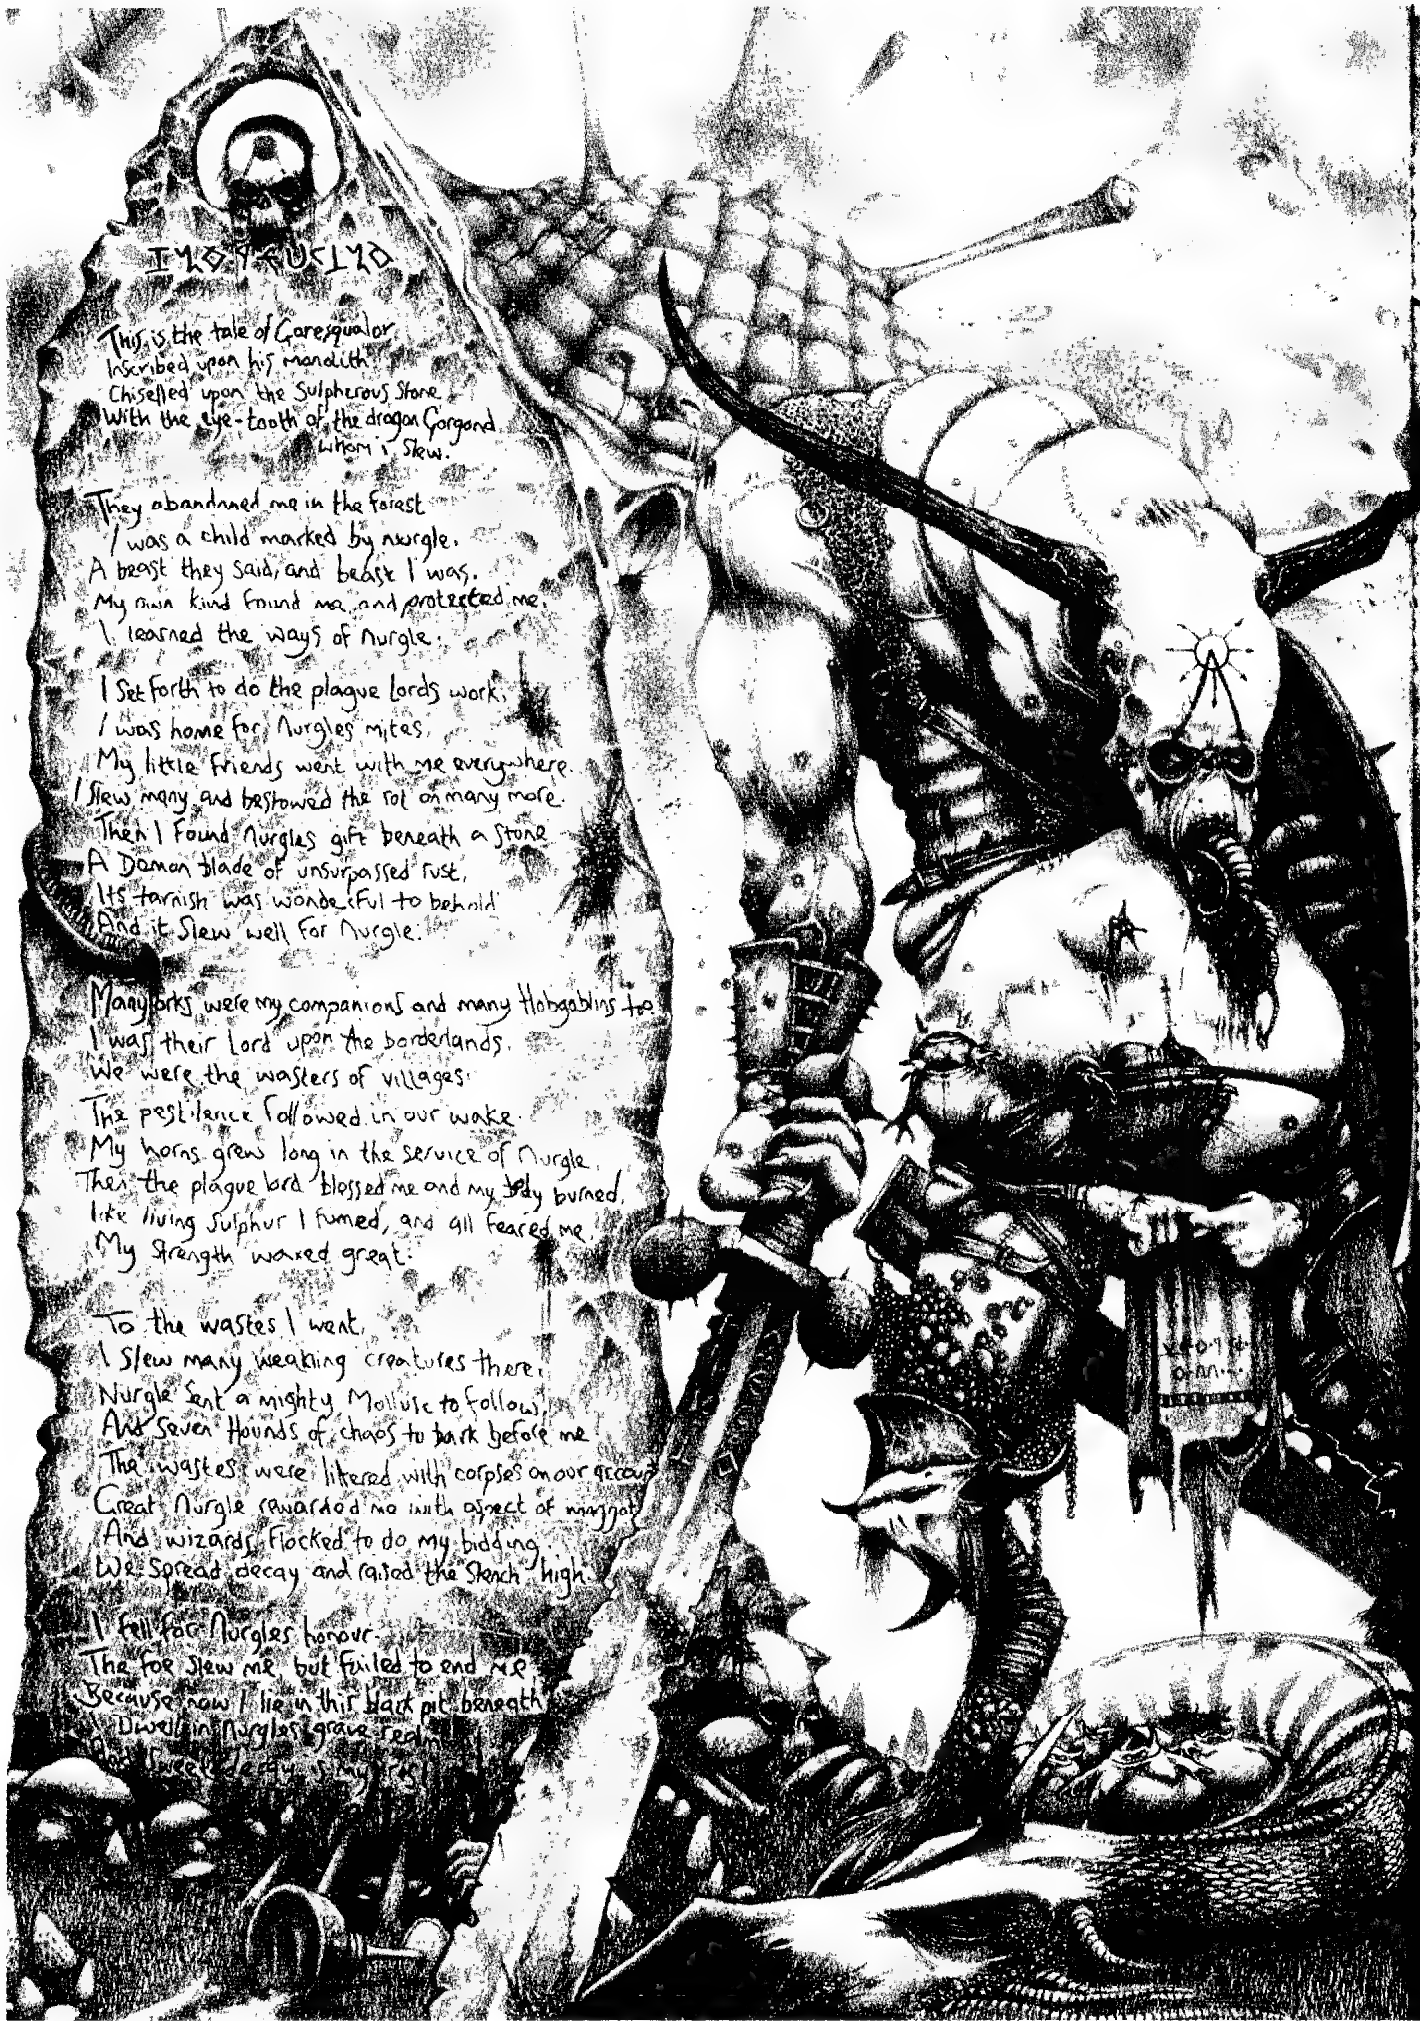 This is the tale of Goresqualor
Inscribed upon his monolith
Chiselled upon the Sulpherous Stone
With the eye-tooth of the dragon Gorgond
whom i slew.
They abandoned me in the forest
I was a child marked by nurgle.
A beast they said, and beast I was.
My own kind found me and protected me.
I learned the ways of Nurgle.
I set forth to do the plague lords work.
I was home for Nurgles mites.
My little friends went with me everywhere.
I slew many and bestowed the rot on many more.
Then I found Nurgles gift beneath a stone
A Demon blade of unsurpassed rust,
Its tarnish was wonderful to behold
And it slew well for Nurgle.
Many orks were my companions and many Hobgoblins too
I was their Lord upon the borderlands.
We were the wasters of villages.
The pestilence followed in our wake.
My horns grew long in the service of Nurgle.
Then the plague lord blessed me and my body burned,
like living sulphur I fumed, and all feared me.
My strength waxed great.
To the wastes I went,
I slew many weakling creatures there.
Nurgle sent a mighty Mollusc to follow,
And seven Hounds of chaos to bark before me
The wastes were littered with corpses on our account
Great Nurgle rewarded me with aspect of maggot
And wizards flocked to do my bidding.
We spread decay and raised the stench high.
I fell for Nurgles honour.
The foe slew me, but failed to end me
Because now I lie in this dark pit beneath
I Dwell in Nurgles grave realm
And sweet decay is my